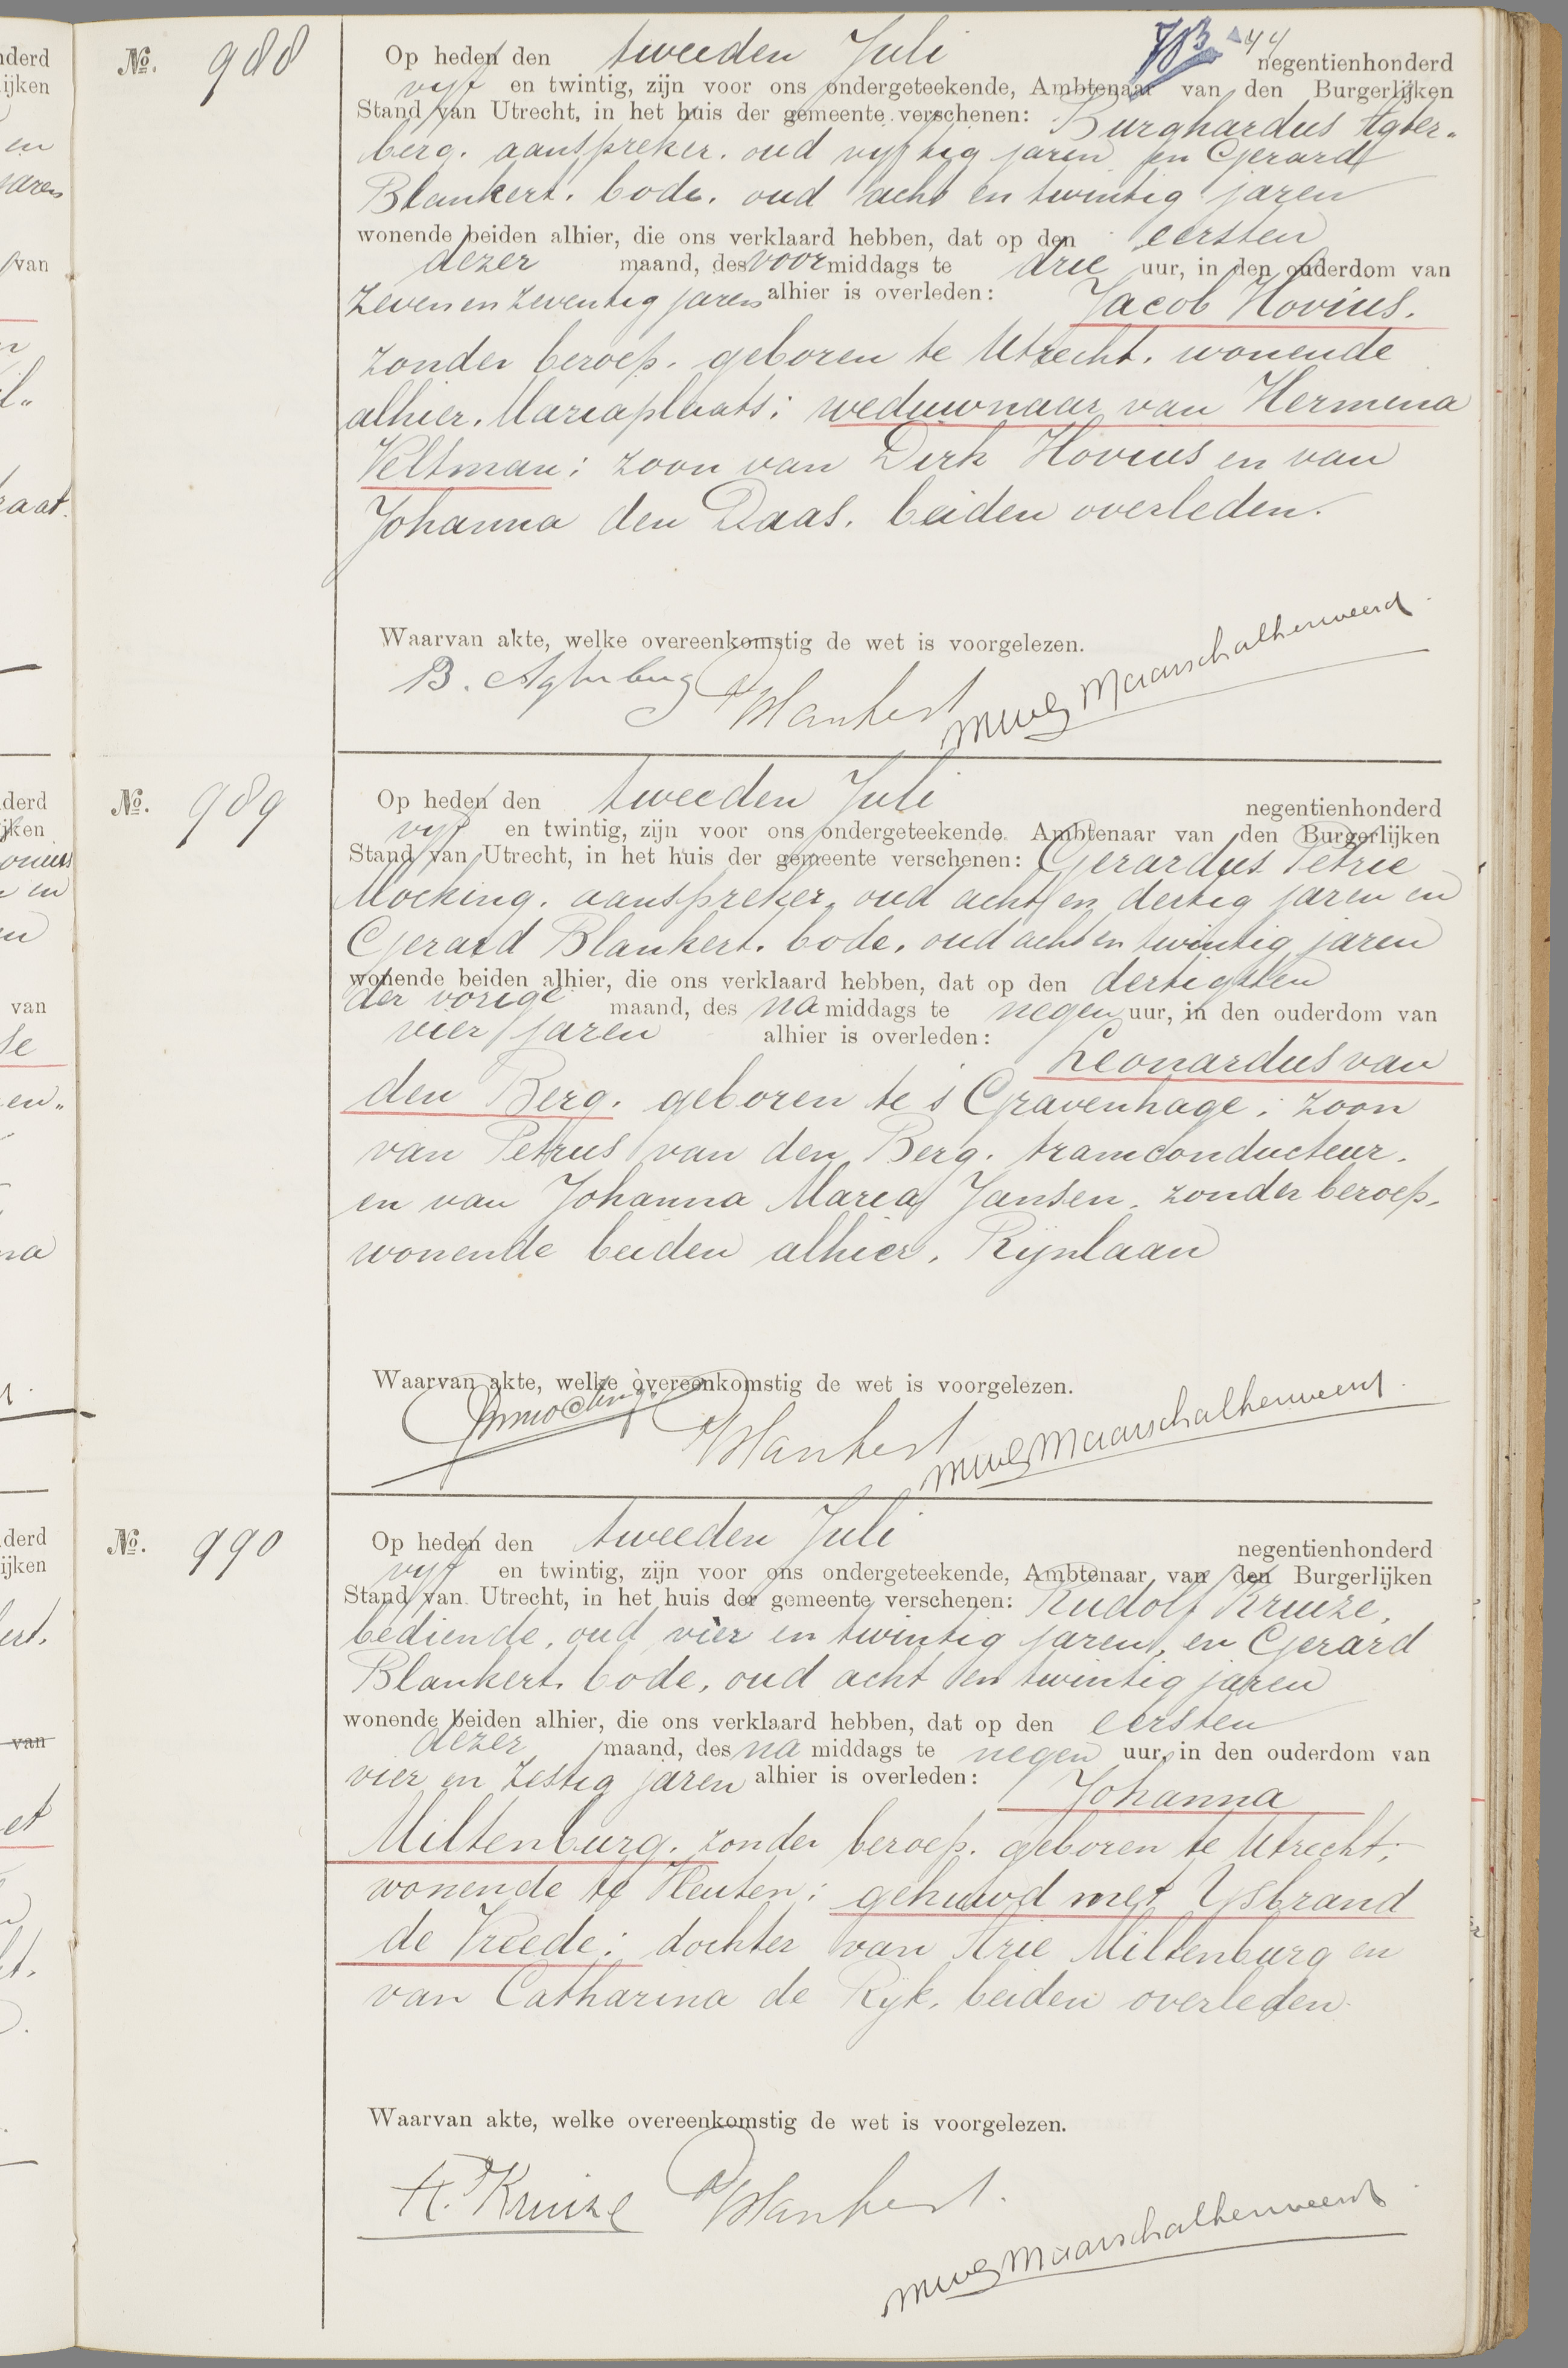 No. 988
Op heden den tweeden Juli negentienhonderd
vyf en twintig, zijn voor ons ondergeteekende, Ambtenaar van den Burgerlijken
Stand van Utrecht, in het huis der gemeente verschenen: Burghardus Agter-
berg. aanspreker. oud vyftig jaren en Gerard
Blankert. bode. oud acht en twintig jaren
wonende beiden alhier, die ons verklaard hebben, dat op den eersten
dezer maand, des voormiddags te drie uur, in den ouderdom van
zeven en zeventig jaren alhier is overleden: Jacob Hovius.
zonder beroep. geboren te Utrecht. wonende
alhier. Mariaplaats; weduwnaar van Hermina
Veltman; zoon van Dirk Hovius en van
Johanna den Daas. beiden overleden.
Waarvan akte, welke overeenkomstig de wet is voorgelezen.
B. Agterberg GBlankert Maarschalkerweerd
No. 989
Op heden den tweeden Juli negentienhonderd
vyf en twintig, zijn voor ons ondergeteekende. Ambtenaar van den Burgerlijken
Stand van Utrecht, in het huis der gemeente verschenen: Gerardus Petrie
Mocking. aanspreker. oud acht en dertig jaren en
Gerard Blankert. bode. oud acht en twintig jaren
wonende beiden alhier, die ons verklaard hebben, dat op den dertigsten
der vorige maand, des namiddags te negen uur, in den ouderdom van
vier jaren alhier is overleden: Leonardus van
den Berg. geboren te 's Gravenhage; zoon
van Petrus van den Berg. tramconducteur.
en van Johanna Maria Jansen. zonder beroep.
wonende beiden alhier. Rijnlaan
Waarvan akte, welke overeenkomstig de wet is voorgelezen.
GPMocking GBlankert Maarschalkerweerd
No. 990
Op heden den tweeden Juli negentienhonderd
vyf en twintig, zijn voor ons ondergeteekende, Ambtenaar van den Burgerlijken
Stand van Utrecht, in het huis der gemeente verschenen: Rudolf Kruize,
bediende, oud vier en twintig jaren, en Gerard
Blankert. bode, oud acht en twintig jaren
wonende beiden alhier, die ons verklaard hebben, dat op den eersten
dezer maand, des na middags te negen uur, in den ouderdom van
vier en zestig jaren alhier is overleden: Johanna
Miltenburg. zonder beroep. geboren te Utrecht;
wonende te Vleuten; gehuwd met Ysbrand
de Vreede; dochter van Arie Miltenburg en
van Catharina de Ryk. beiden overleden.
Waarvan akte, welke overeenkomstig de wet is voorgelezen.
Kruize GBlankert. Maarschalkerweerd